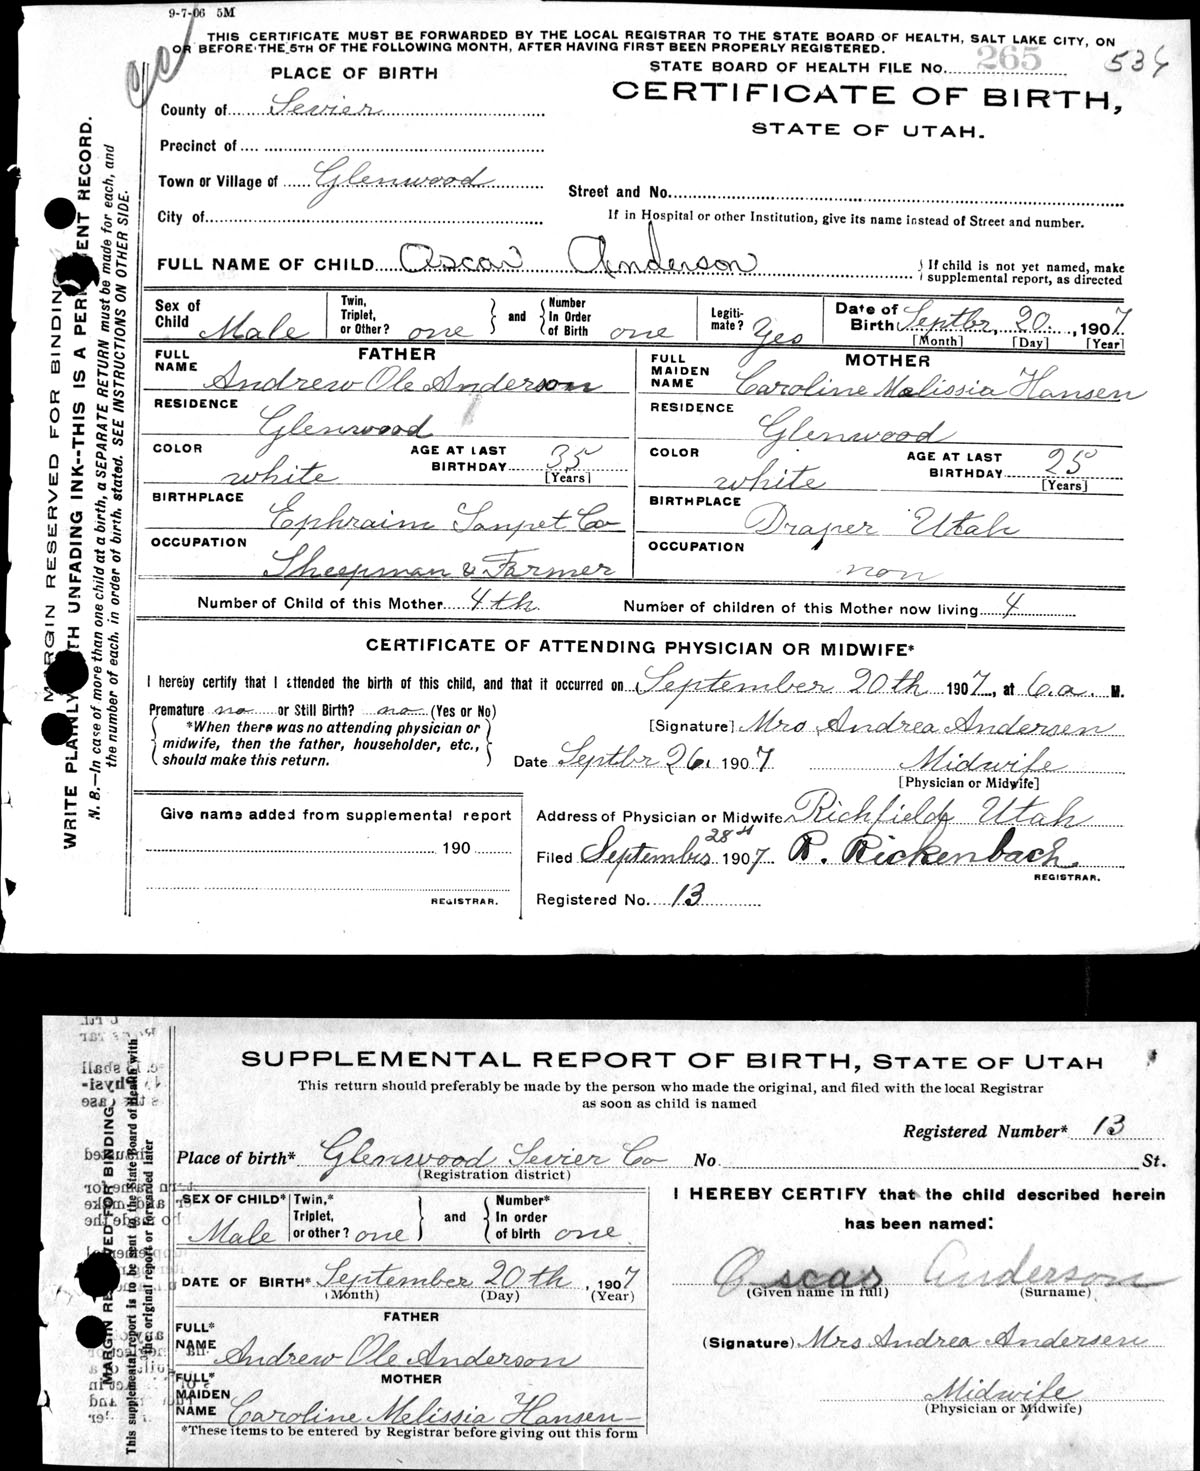 9-7-06 5M
THIS CERTIFICATE MUST BE FORWARDED BY THE LOCAL REGISTRAR TO THE STATE BOARD OF HEALTH, SALT LAKE CITY, ON
OR BEFORE THE 5TH OF THE FOLLOWING MONTH, AFTER HAVING FIRST BEEN PROPERLY REGISTERED.
PLACE OF BIRTH
STATE BOARD OF HEALTH FILE No. 265 534
County of Sevier
CERTIFICATE OF BIRTH,
STATE OF UTAH.
Precinct of
Town or Village of Glenwood
Street and No.
City of
If in Hospital or other Institution, give its name instead of Street and number.
FULL NAME OF CHILD Oscar Anderson
If child is not yet named, make supplemental report, as directed
Sex of Child Male Twin, Triplet, or Other? one and Number In Order of Birth one Legiti-mate? Yes Date of Birth Septbr, 20, 1907
[Month] [Day] [Year]
FATHER
MOTHER
FULL NAME Andrew Ole Anderson
FULL MAIDEN NAME Caroline Melissia Hansen
RESIDENCE Glenwood
RESIDENCE Glenwood
COLOR white AGE AT LAST BIRTHDAY 35 [Years]
COLOR white AGE AT LAST BIRTHDAY 25 [Years]
BIRTHPLACE Ephraim Sanpet Co
BIRTHPLACE Draper Utah
OCCUPATION Sheepman & Farmer
OCCUPATION non
Number of Child of this Mother 4th Number of children of this Mother now living 4
CERTIFICATE OF ATTENDING PHYSICIAN OR MIDWIFE*
I hereby certify that I attended the birth of this child, and that it occurred on September 20th 1907, at 6 a. M.
Premature no or Still Birth? no (Yes or No)
*When there was no attending physician or
midwife, then the father, householder, etc.,
should make this return.
[Signature] Mrs Andrea Andersen
Date Septbr 26, 1907 Midwife
[Physician or Midwife]
Give name added from supplemental report
190
REGISTRAR.
Address of Physician or Midwife Richfield Utah
Filed September 28th 1907 R. Rickenbach
REGISTRAR.
Registered No. 13
MARGIN RESERVED FOR BINDING
WRITE PLAINLY WITH UNFADING INK--THIS IS A PERMANENT RECORD.
N. B.--In case of more than one child at a birth, a SEPARATE RETURN must be made for each, and
the number of each, in order of birth, stated. SEE INSTRUCTIONS ON OTHER SIDE.
SUPPLEMENTAL REPORT OF BIRTH, STATE OF UTAH
This return should preferably be made by the person who made the original, and filed with the local Registrar
as soon as child is named
Registered Number* 13
Place of birth* Glenwood Sevier Co No St.
(Registration district)
SEX OF CHILD* Male Twin,* Triplet, or other? one and Number* In order of birth one
I HEREBY CERTIFY that the child described herein
has been named:
DATE OF BIRTH* September 20th, 1907
(Month) (Day) (Year)
Oscar Anderson
(Given name in full) (Surname)
FATHER
FULL* NAME Andrew Ole Anderson
(Signature) Mrs Andrea Andersen
MOTHER
FULL* MAIDEN NAME Caroline Melissia Hansen
Midwife
(Physician or Midwife)
*These items to be entered by Registrar before giving out this form
MARGIN RESERVED FOR BINDING
This supplemental report is to be sent to the State Board of Health with
the original report or forwarded later